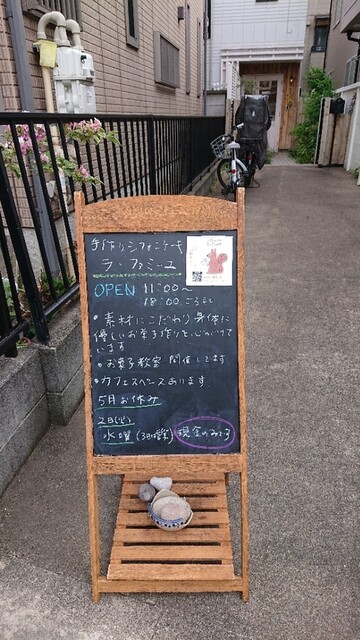 手作りシフォンケーキ
ラ・ファミーユ
OPEN 11:00〜
18:00ごろまで
・素材にこだわり身体に
優しいお菓子作りを心がけて
います
・お菓子教室 開催してます
・カフェスペースあります
5月お休み
2日(火)
水曜(3日営業) 現金のみです